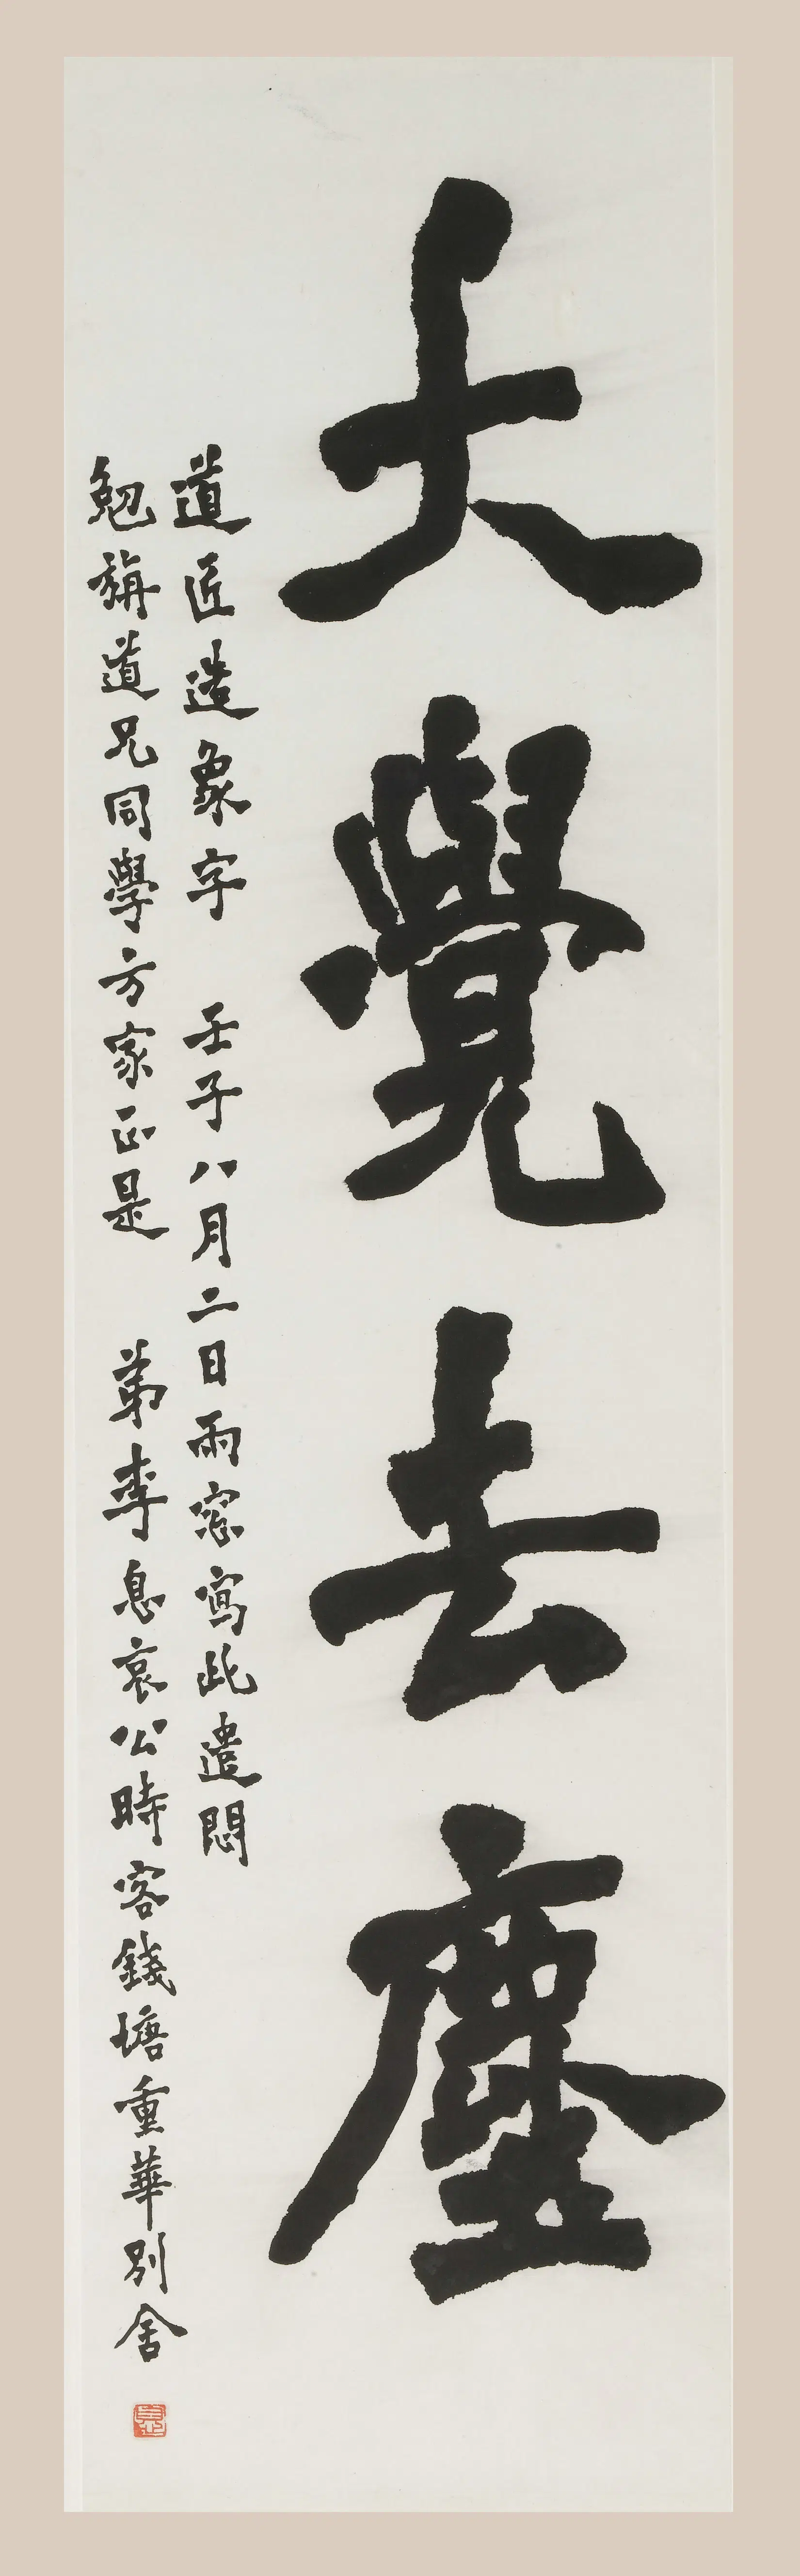 大覺去塵
道匠造象字 壬子八月二日雨窓寫此遣悶
勉旃道兄同學方家正是 弟李息哀公時客錢塘重華別舍